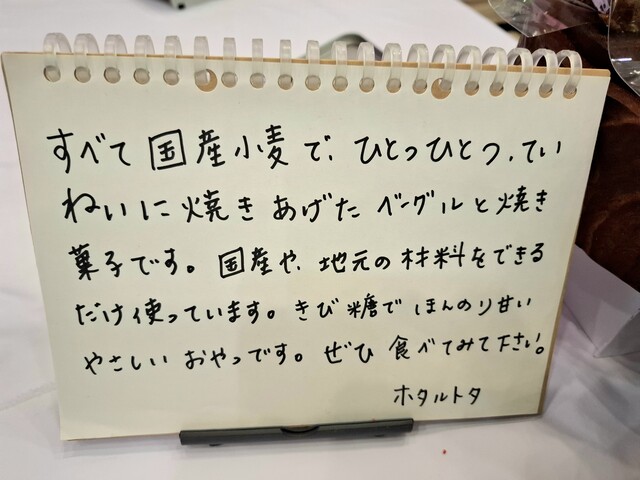 すべて国産小麦で、ひとつひとつ、てい
ねいに焼きあげたベーグルと焼き
菓子です。国産や、地元の材料をできる
だけ使っています。きび糖でほんのり甘い
やさしいおやつです。ぜひ食べてみて下さい。
ホタルトタ